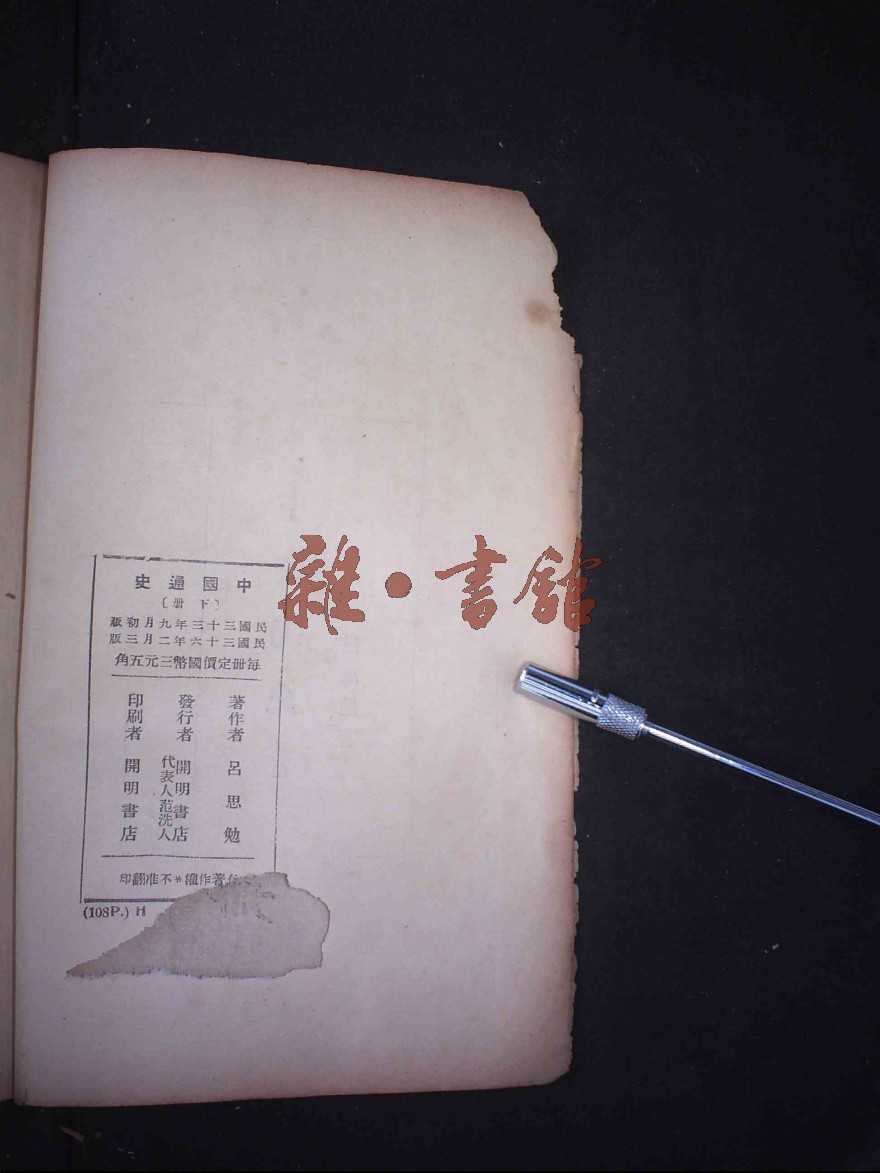 中國通史
〔下册〕
民國三十三年九月初版
民國三十六年二月三版
每册定價國幣三元五角
著作者 呂思勉
發行者 開明書店
代表人范洗人
印刷者 開明書店
著作權*不准翻印
(108P.) H
雜•書館